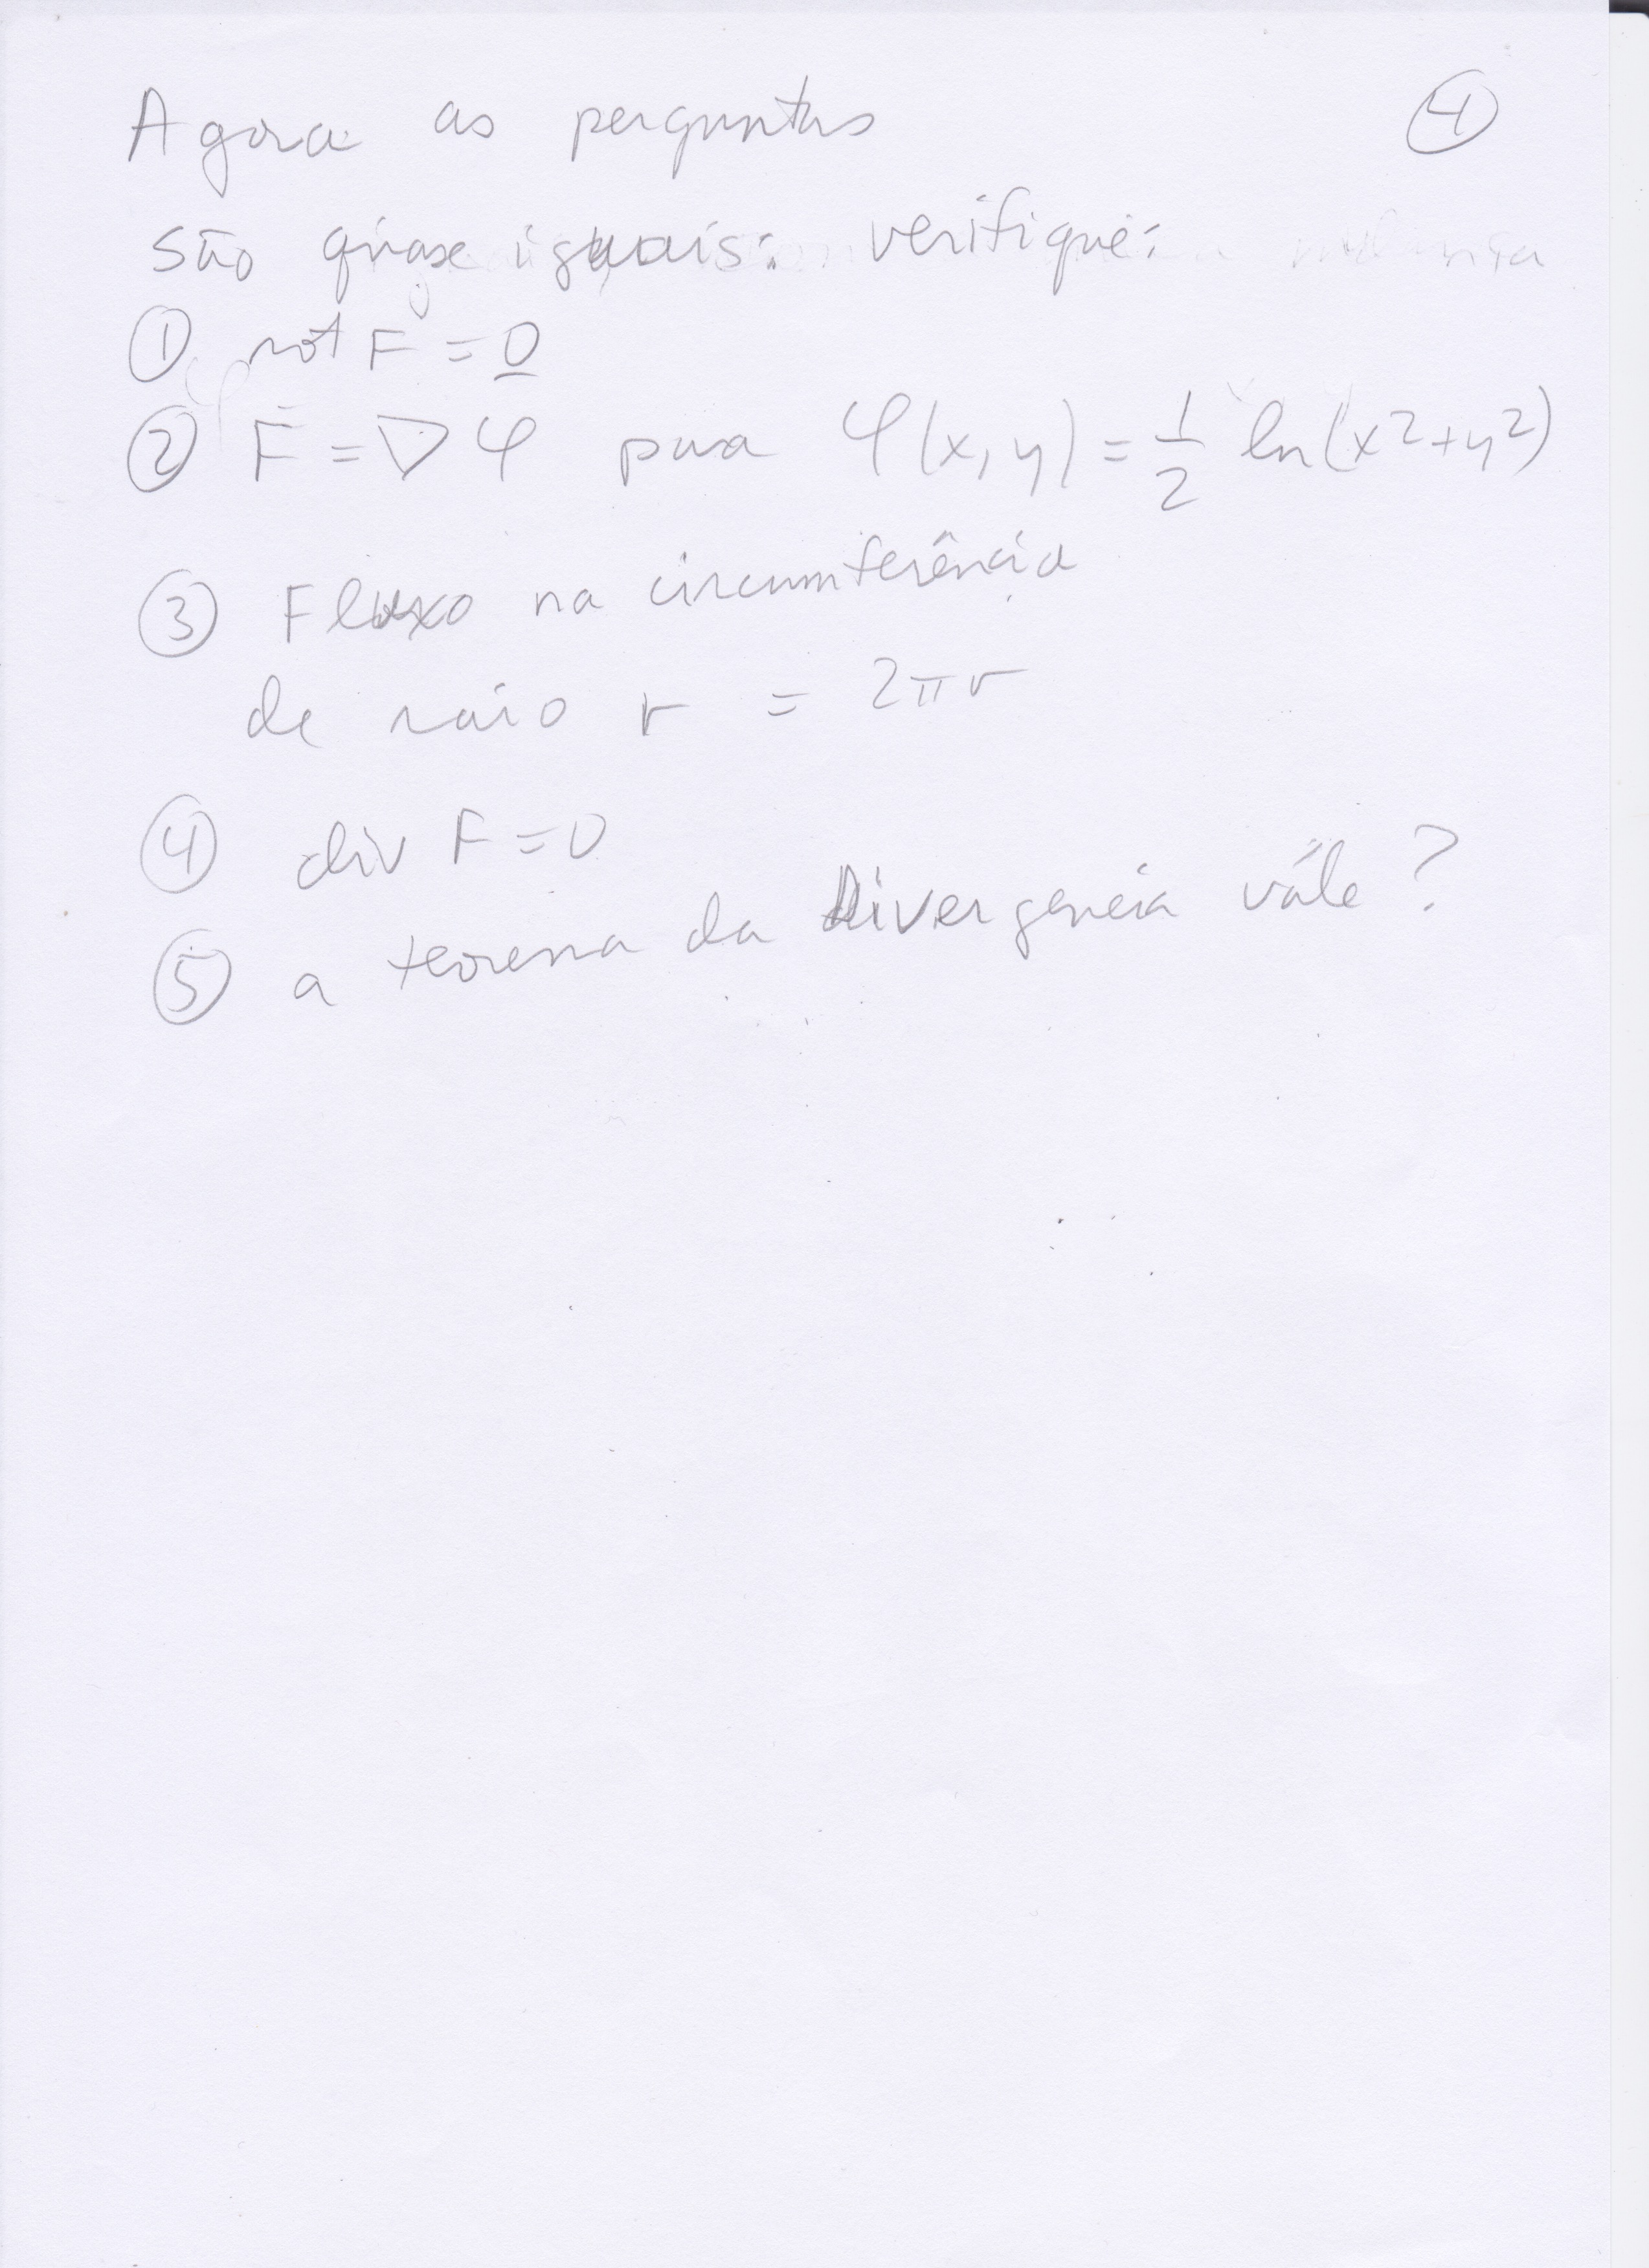 Agora as perguntas ④
são quase iguais: verifique:
① rot F = 0
② F = ∇φ para φ(x,y) = 1/2 ln(x²+y²)
③ Fluxo na circumferência
de raio r = 2πr
④ div F = 0
⑤ a teorema da Divergencia vále?